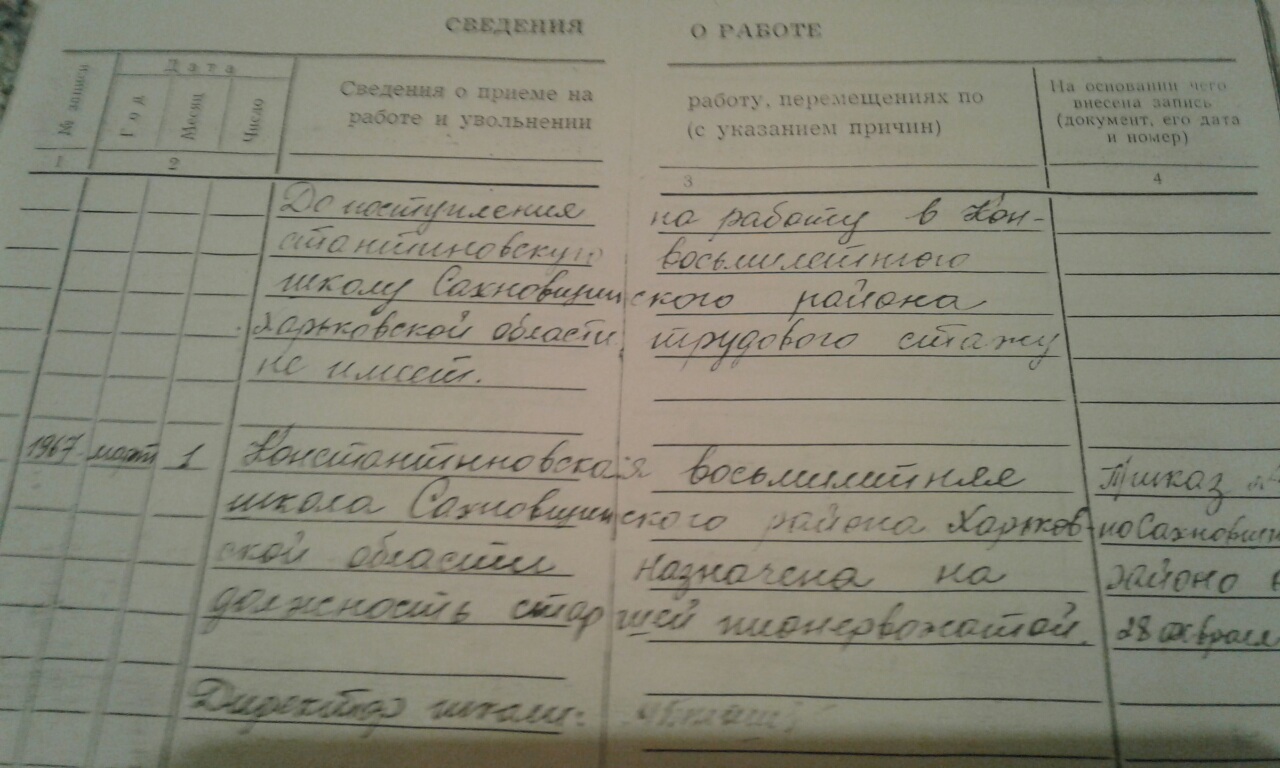 СВЕДЕНИЯ О РАБОТЕ
№ записи
Дата
Год
Месяц
Число
Сведения о приеме на работу, перемещениях по
работе и увольнении (с указанием причин)
На основании чего
внесена запись
(документ, его дата
и номер)
1 2 3 4
До поступления на работу в Кон-
стантиновскую восьмилетнюю
школу Сахновщинского района
Харьковской области трудового стажу
не имеет.
1967 март 1 Константиновская восьмилетняя Приказ
школа Сахновщинского района Харьков- по Сахновщин
ской области назначена на районо
должность старшей пионервожатой. 28 февраля
Директор школы: